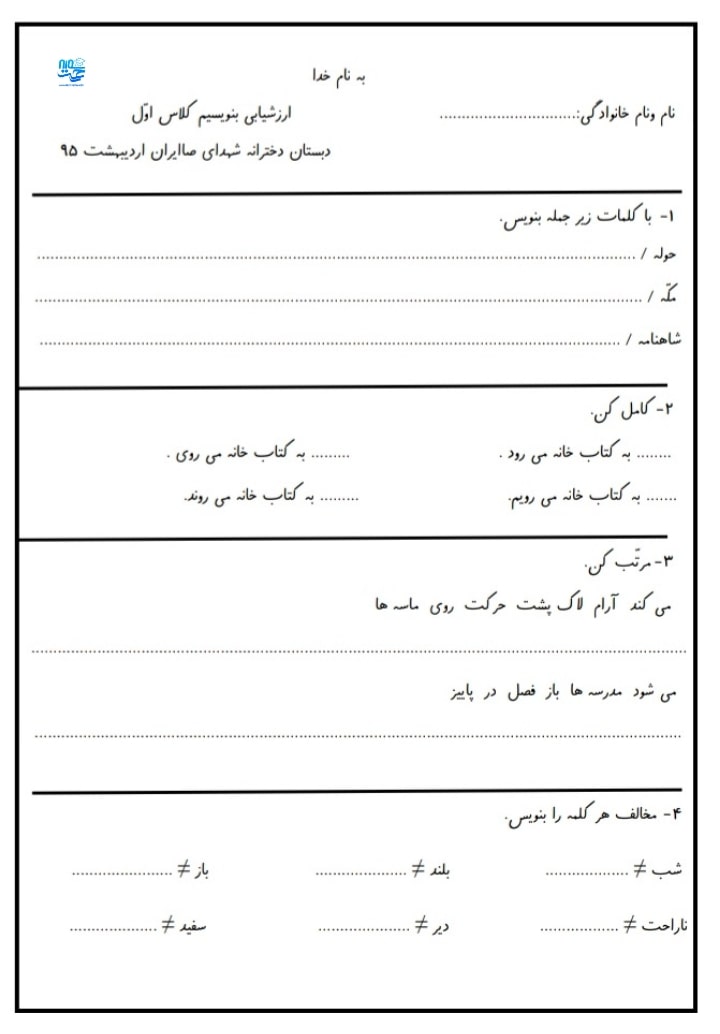 به نام خدا
نام ونام خانوادگی:............................... ارزشیابی بنویسیم کلاس اوّل
دبستان دخترانه شهدای صاایران اردیبهشت ۹۵
۱- با کلمات زیر جمله بنویس.
حوله / ........................................
مکّه / ........................................
شاهنامه / ........................................
۲- کامل کن.
........ به کتاب خانه می رود . ......... به کتاب خانه می روی .
....... به کتاب خانه می رویم. ......... به کتاب خانه می روند.
۳- مرتّب کن.
می کند آرام لاک پشت حرکت روی ماسه ها
........................................
می شود مدرسه ها باز فصل در پاییز
........................................
۴- مخالف هر کلمه را بنویس.
شب ≠ ................... بلند ≠ ..................... باز ≠ .......................
ناراحت ≠ .................. دیر ≠ ..................... سفید ≠ ....................